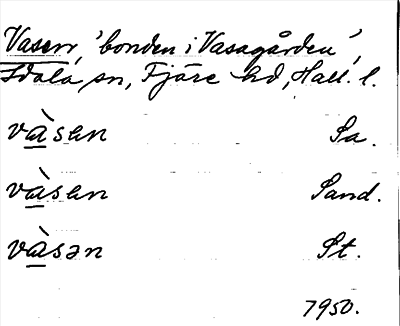 Vasen, 'bonden i Vasagården',
Idala sn, Fjäre hd, Hall. l.
và̱sen Sa.
và̱sen Sand.
và̱sən St.
7950.